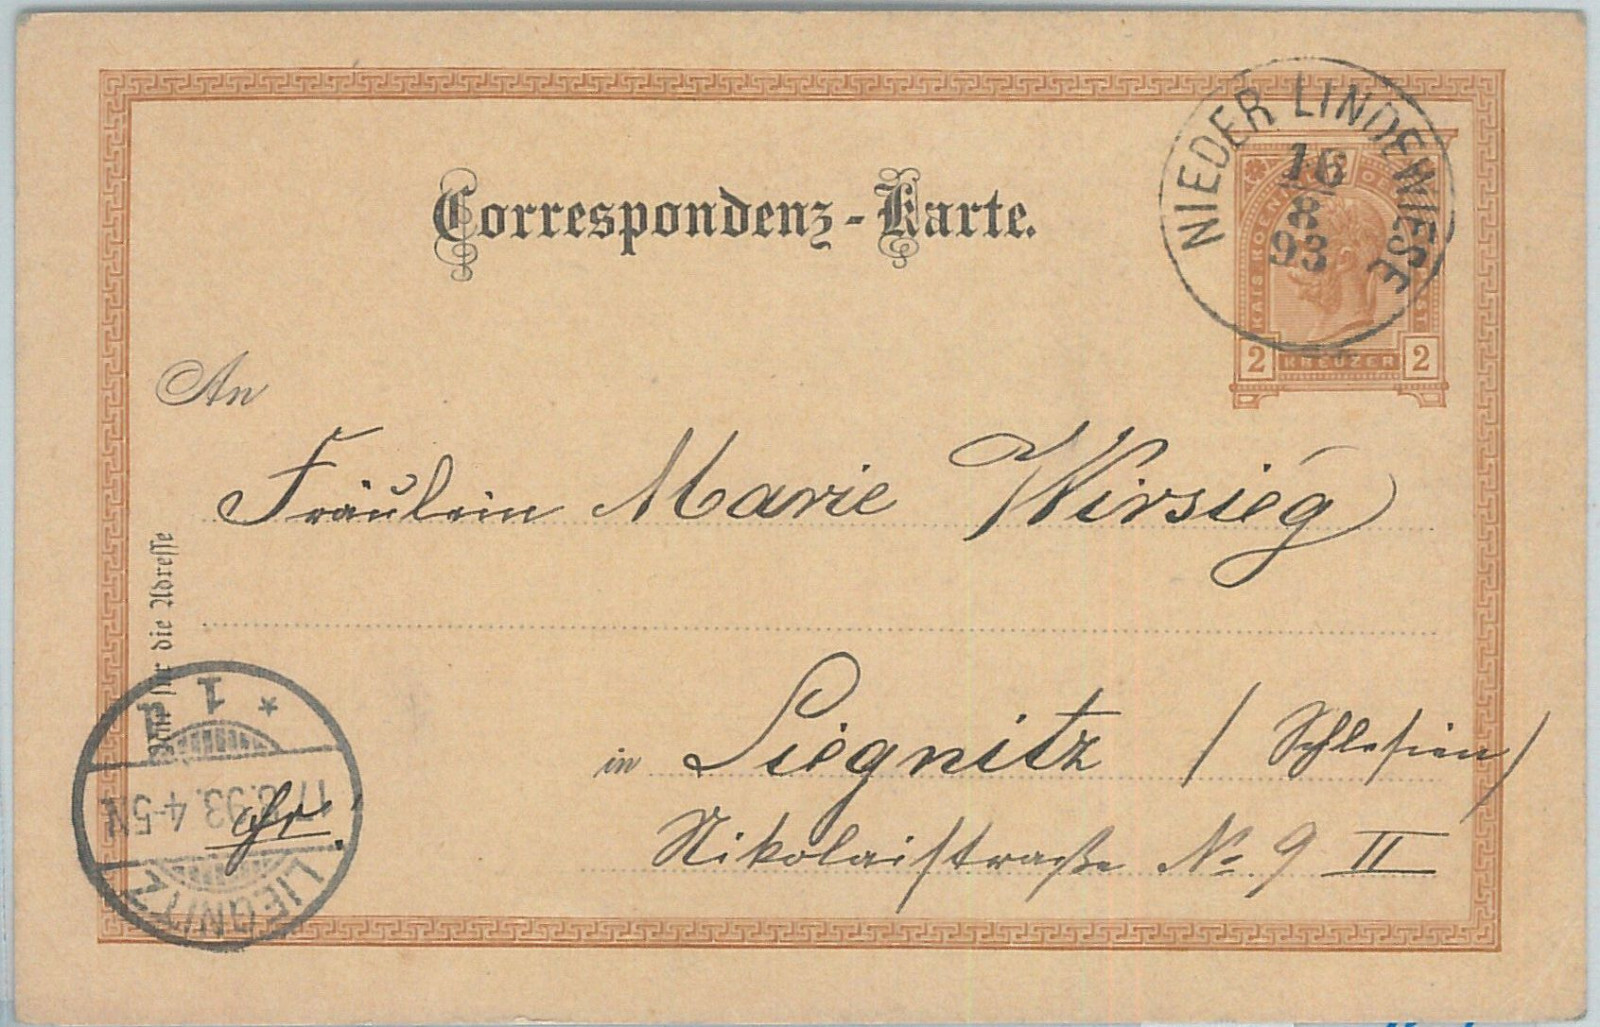 Correspondenz-Karte.
NIEDER LINDEWIESE
16
8
93
2 KREUZER 2
An
Fräulein Marie Wirsieg
Nur für die Adresse
in Liegnitz / Schlesien /
Nikolaistraße No 9 II
LIEGNITZ
17.8.93. 4-5N
* 1 d